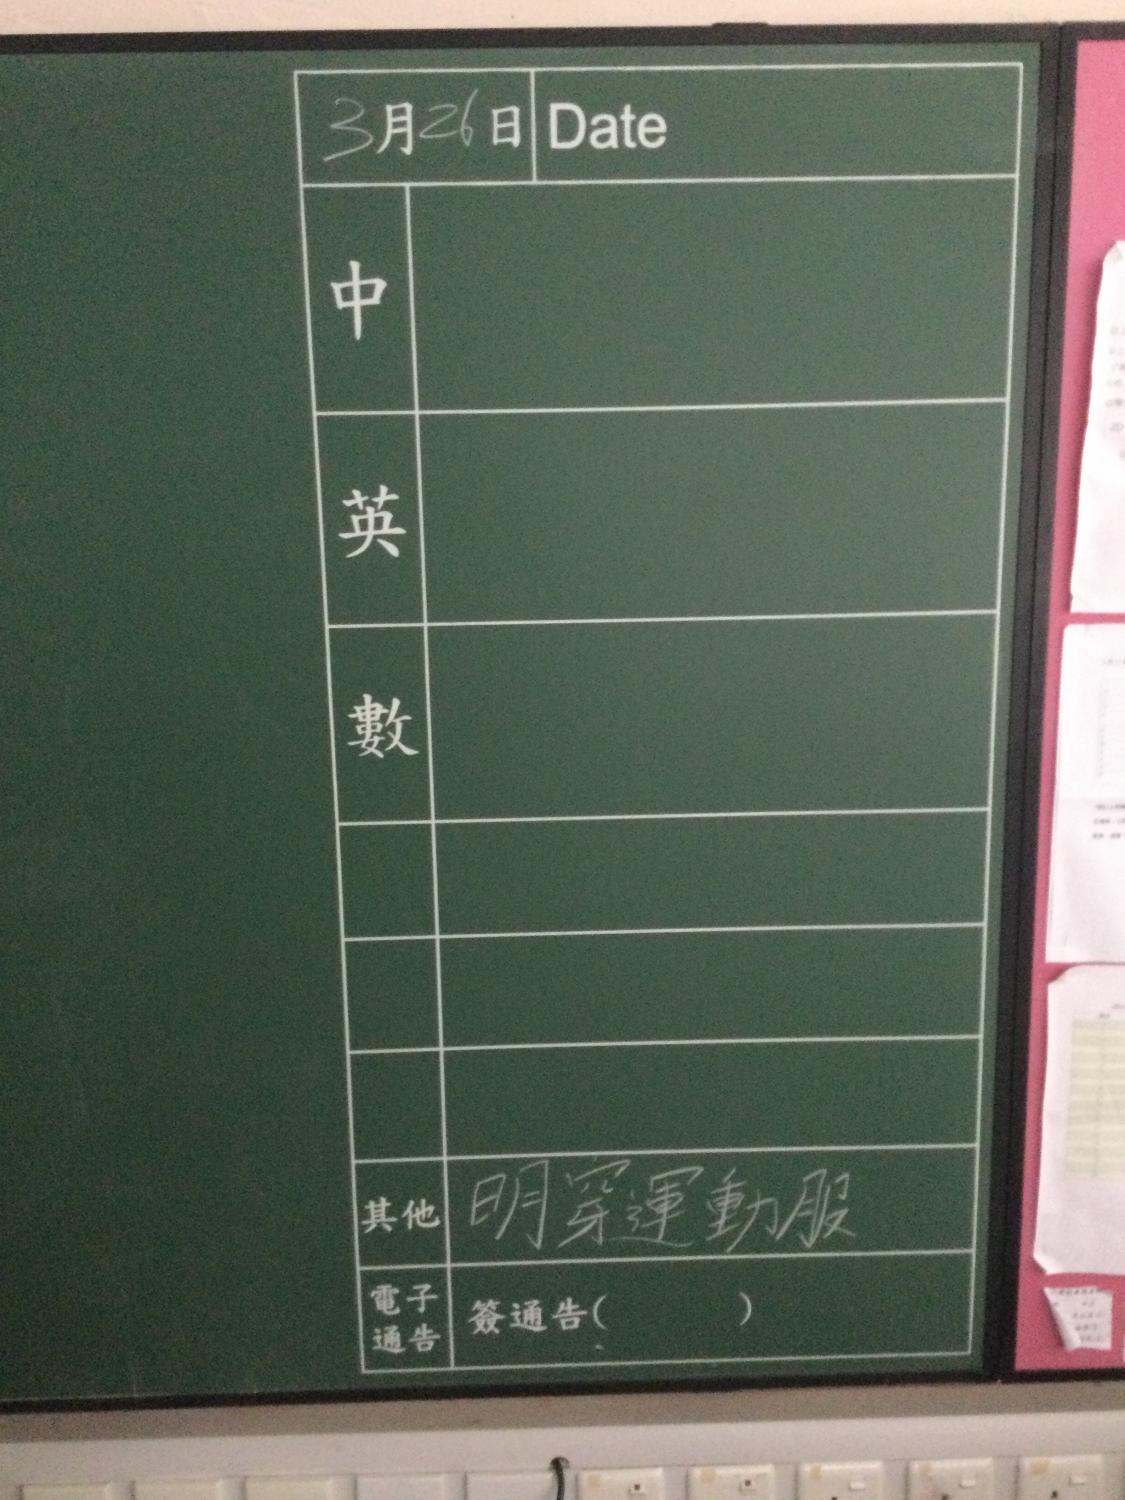 3月26日 Date
中
英
數
其他 明穿運動服
電子
通告 簽通告( )